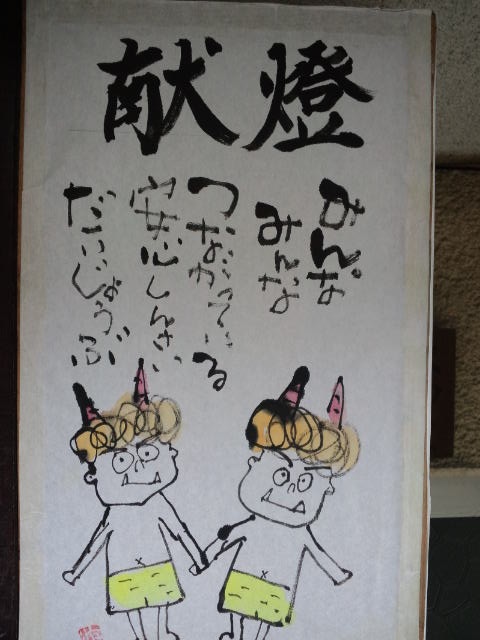 献燈
みんな
みんな
つながっている
安心しんさい
だいじょうぶ